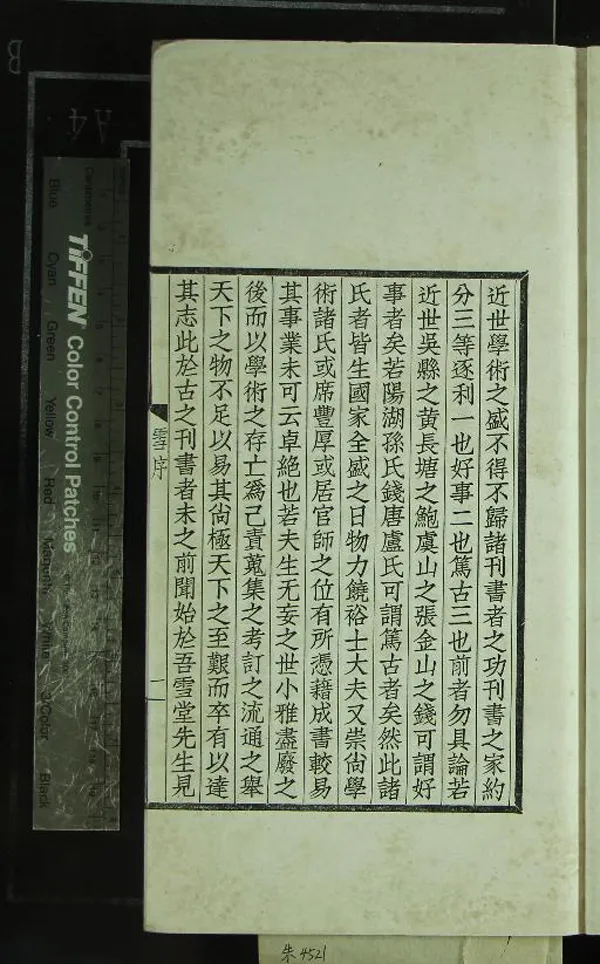 近世學術之盛不得不歸諸刊書者之功刊書之家約
分三等逐利一也好事二也篤古三也前者勿具論若
近世吳縣之黄長塘之鮑虞山之張金山之錢可謂好
事者矣若陽湖孫氏錢唐盧氏可謂篤古者矣然此諸
氏者皆生國家全盛之日物力饒裕士大夫又崇尙學
術諸氏或席豐厚或居官師之位有所憑藉成書較易
其事業未可云卓絶也若夫生无妄之世小雅盡廢之
後而以學術之存亡爲己責蒐集之考訂之流通之舉
天下之物不足以易其尙極天下之至艱而卒有以達
其志此於古之刊書者未之前聞始於吾雪堂先生見
雪序
一
TIFFEN Color Control Patches
Blue
Cyan
Green
Yellow
Red
Magenta
White
3/Color
Black
Centimetres
A4
B
朱4521